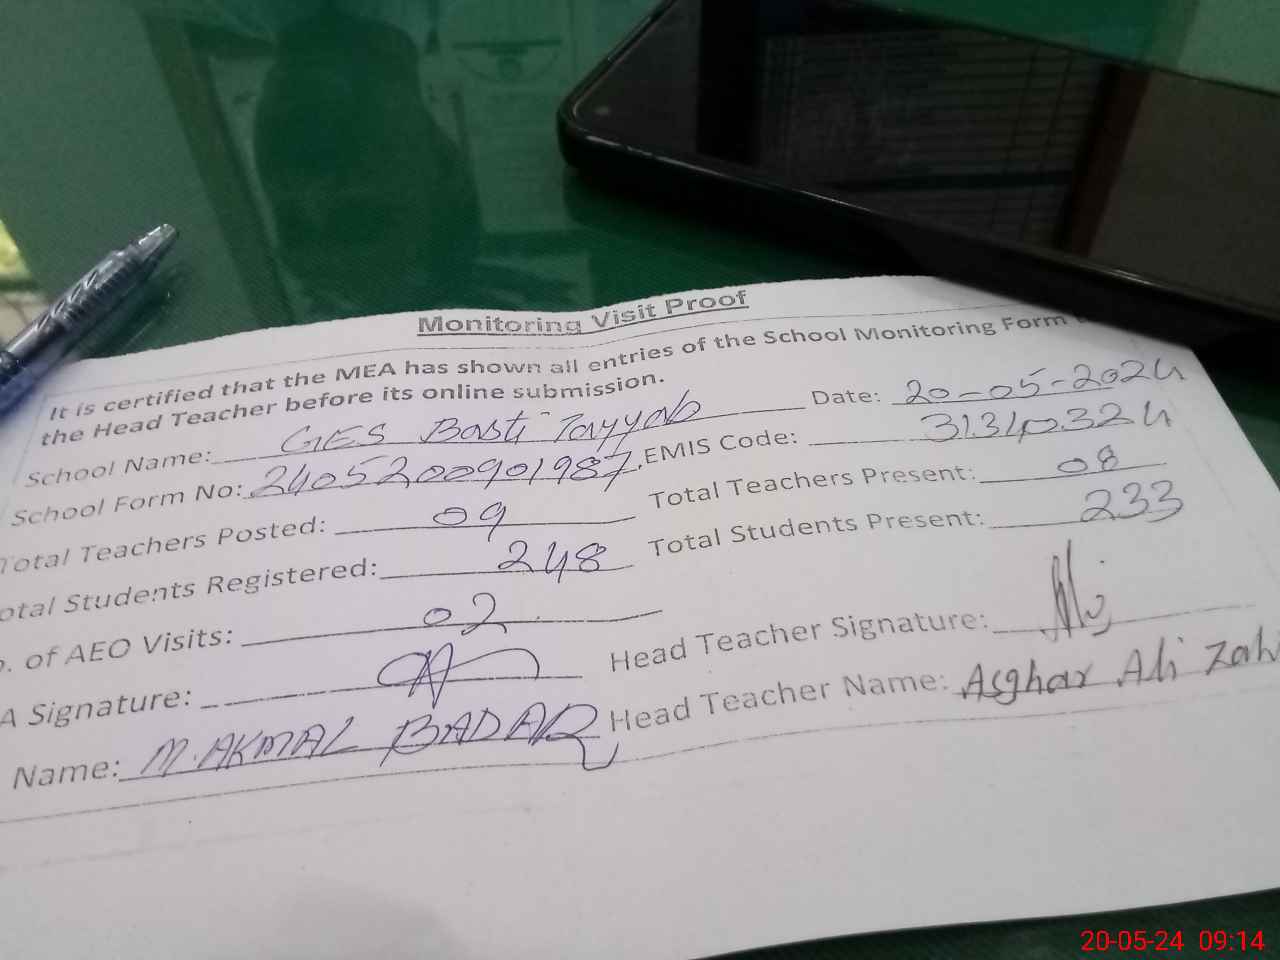 Monitoring Visit Proof
It is certified that the MEA has shown all entries of the School Monitoring Form
the Head Teacher before its online submission.
School Name: GES Basti Tayyab Date: 20-05-2024
School Form No: 2405200901987 EMIS Code: 31340324
Total Teachers Posted: 09 Total Teachers Present: 08
otal Students Registered: 248 Total Students Present: 233
. of AEO Visits: 02
A Signature: Head Teacher Signature:
Name: M. AKMAL BADAR Head Teacher Name: Asghar Ali
20-05-24 09:14